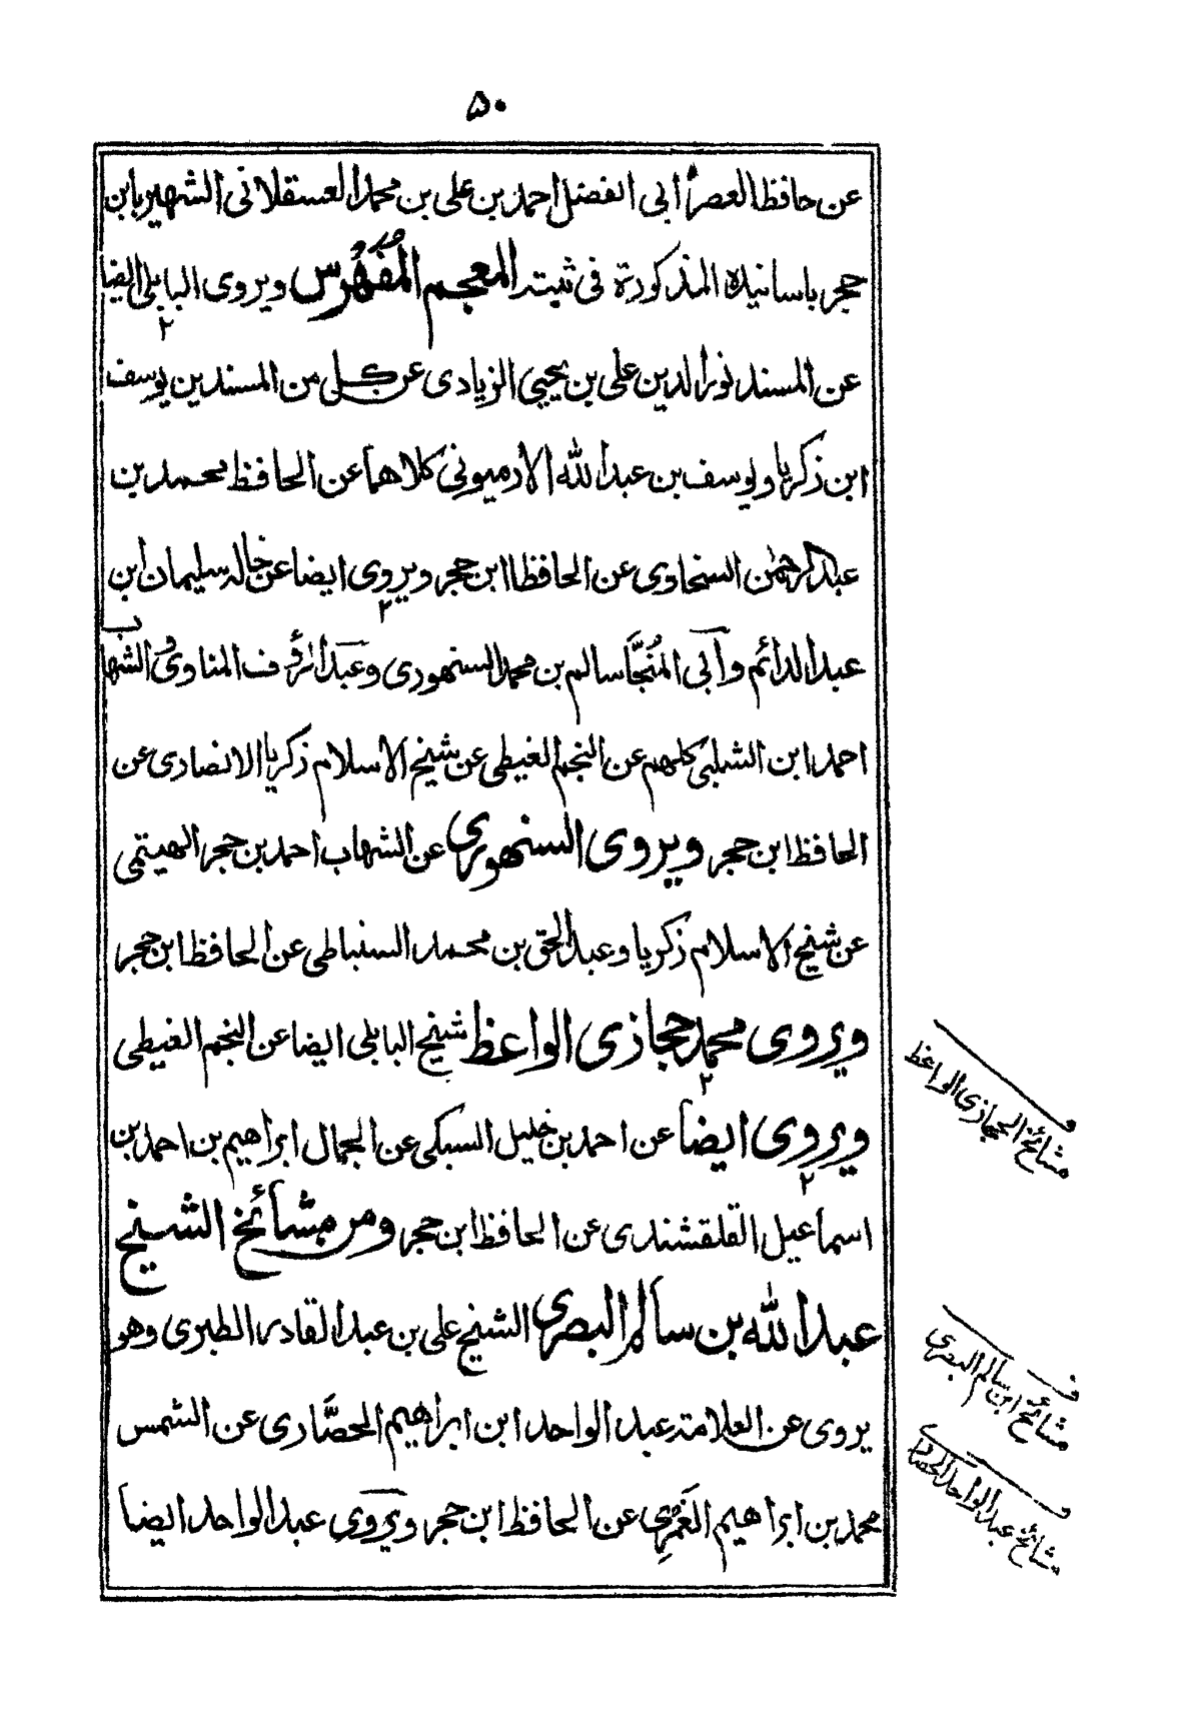 ۵۰
عن حافظ العصر ابی الفضل احمد بن علی بن محمد العسقلانی الشهیر بابن
حجر باسانیده المذکورة فی ثبته المعجم المُفَهْرس ویروی البابلی ایضا
عن المسند نور الدین علی بن یحیی الزیادی عن کل من المسندین یوسف
ابن زکریا ویوسف بن عبد الله الارمیونی کلاهما عن الحافظ محمد بن
عبد الرحمٰن السخاوی عن الحافظ ابن حجر ویروی ایضا عن خاله سلیمان ابن
عبد الدائم وابی المُنجَّا سالم بن محمد السنهوری وعبد الرؤف المناوی والشهاب
احمد ابن الشلبی کلهم عن النجم الغیطی عن شیخ الاسلام زکریا الانصاری عن
الحافظ ابن حجر ویروی السنهوری عن الشهاب احمد بن حجر الهیتمی
عن شیخ الاسلام زکریا وعبد الحق بن محمد السنباطی عن الحافظ ابن حجر
ویروی محمد حجازی الواعظ شیخ البابلی ایضا عن النجم الغیطی
ویروی ایضا عن احمد بن خلیل السبکی عن الجمال ابراهیم بن احمد بن
اسماعیل القلقشندی عن الحافظ ابن حجر ومن مشائخ الشیخ
عبد الله بن سالم البصری الشیخ علی بن عبد القادر الطبری وهو
یروی عن العلامة عبد الواحد ابن ابراهیم الحصّاری عن الشمس
محمد بن ابراهیم الغَمْرِی عن الحافظ ابن حجر ویروی عبد الواحد ایضا
مشائخ الحجازی الواعظ
ف
مشائخ ابن سالم البصری
مشائخ عبد الواحد الحصاری